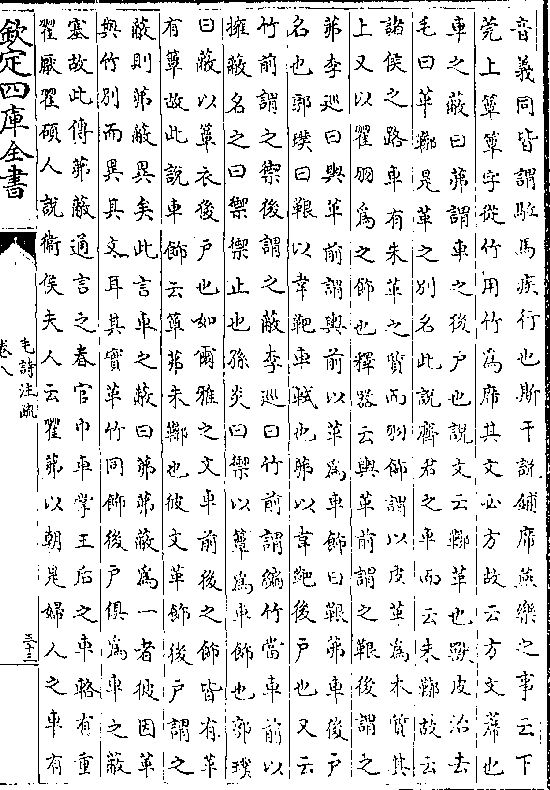 音義同皆謂駈馬疾行也斯干說鋪席燕樂之事云下
莞上簟簟字從竹用竹為席其文必方故云方文蓆也
車之蔽曰茀謂車之後戶也說文云鞹革也獸皮治去
毛曰革鞹是革之別名此說齊君之車而云朱鞹故云
諸侯之路車有朱革之質而羽飾謂以皮革為本質其
上又以翟羽為之飾也釋器云輿革前謂之鞎後謂之
茀李廵曰輿革前謂輿前以革為車飾曰鞎茀車後戶
名也郭璞曰鞎以韋靶車軾也茀以韋靶後戶也又云
竹前謂之禦後謂之蔽李廵曰竹前謂編竹當車前以
擁蔽名之曰禦禦止也孫炎曰禦以簟為車飾也郭璞
曰蔽以簟衣後戶也如爾雅之文車前後之飾皆有革
有簟故此說車飾云簟茀朱鞹也彼文革飾後戶謂之
蔽則茀蔽異矣此言車之蔽曰茀茀蔽為一者彼因革
與竹別而異其文耳其實革竹同飾後戶俱為車之蔽
塞故此傳茀蔽通言之春官巾車掌王后之車輅有重
翟厭翟碩人說衛侯夫人云翟茀以朝是婦人之車有
欽定四庫全書
毛詩注疏
卷八
三十三